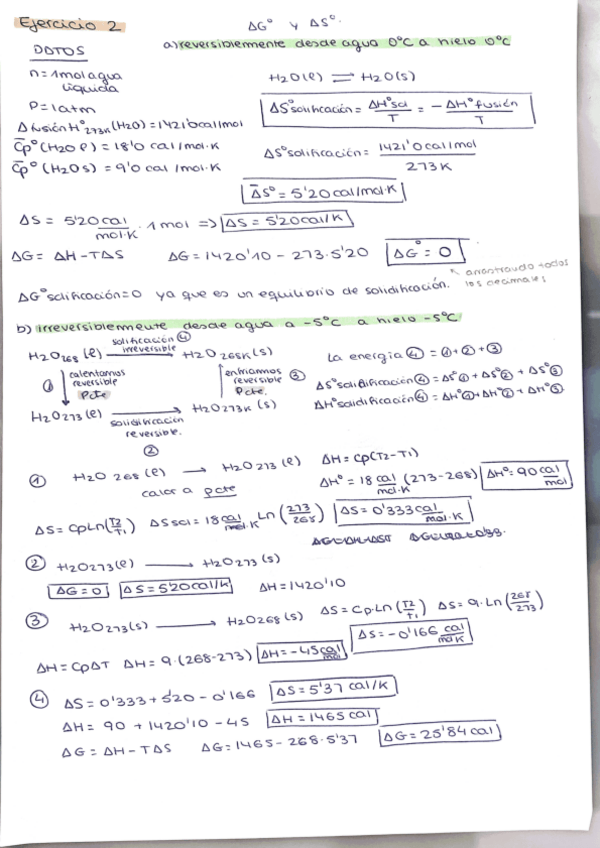 Ejercicio 2
ΔG° y ΔS°.
a) reversiblemente desde agua 0°C a hielo 0°C
DATOS
n = 1 mol agua líquida
P = 1 atm
Δfusión H°273K (H2O) = 1421'0 cal/mol
C̄p° (H2O l) = 18'0 cal/mol·K
C̄p° (H2O s) = 9'0 cal/mol·K
H2O(l) ⇌ H2O(s)
ΔS°solificación = ΔH°sol / T = - ΔH°fusión / T
ΔS°solificación = 1421'0 cal/mol / 273 K
Δ̄S° = 5'20 cal/mol·K
ΔS = 5'20 cal/mol·K · 1 mol => ΔS = 5'20 cal/K
ΔG = ΔH - TΔS ΔG = 1420'10 - 273·5'20 ΔG° = 0
↖ arrastrando todos los decimales
ΔG°solificación = 0 ya que es un equilibrio de solidificación.
b) irreversiblemente desde agua a -5°C a hielo -5°C
solificación ④ irreversible
H2O268 (l) → H2O268K (s)
① calentamos reversible Pcte
enfriamos reversible Pcte. ③
H2O273 (l) → H2O273K (s)
solidificación reversible.
②
La energia ④ = ① + ② + ③
ΔS°solidificación ④ = ΔS°① + ΔS°② + ΔS°③
ΔH°solidificación ④ = ΔH°① + ΔH°② + ΔH°③
① H2O 268 (l) → H2O 273 (l) ΔH = Cp(T2-T1)
calor a pcte
ΔH° = 18 cal/mol·K (273-268) ΔH° = 90 cal/mol
ΔS = Cp Ln (T2/T1) ΔSsol = 18 cal/mol·K Ln (273/268) ΔS = 0'333 cal/mol·K
② H2O273 (l) → H2O273 (s)
ΔG = 0 ΔS = 5'20 cal/K ΔH = 1420'10
③ H2O273 (s) → H2O268 (s) ΔS = Cp·Ln (T2/T1) ΔS = 9·Ln (268/273)
ΔS = -0'166 cal/mol·K
ΔH = CpΔT ΔH = 9·(268-273) ΔH = -45 cal/mol
④ ΔS = 0'333 + 5'20 - 0'166 ΔS = 5'37 cal/K
ΔH = 90 + 1420'10 - 45 ΔH = 1465 cal
ΔG = ΔH - TΔS ΔG = 1465 - 268·5'37 ΔG = 25'84 cal